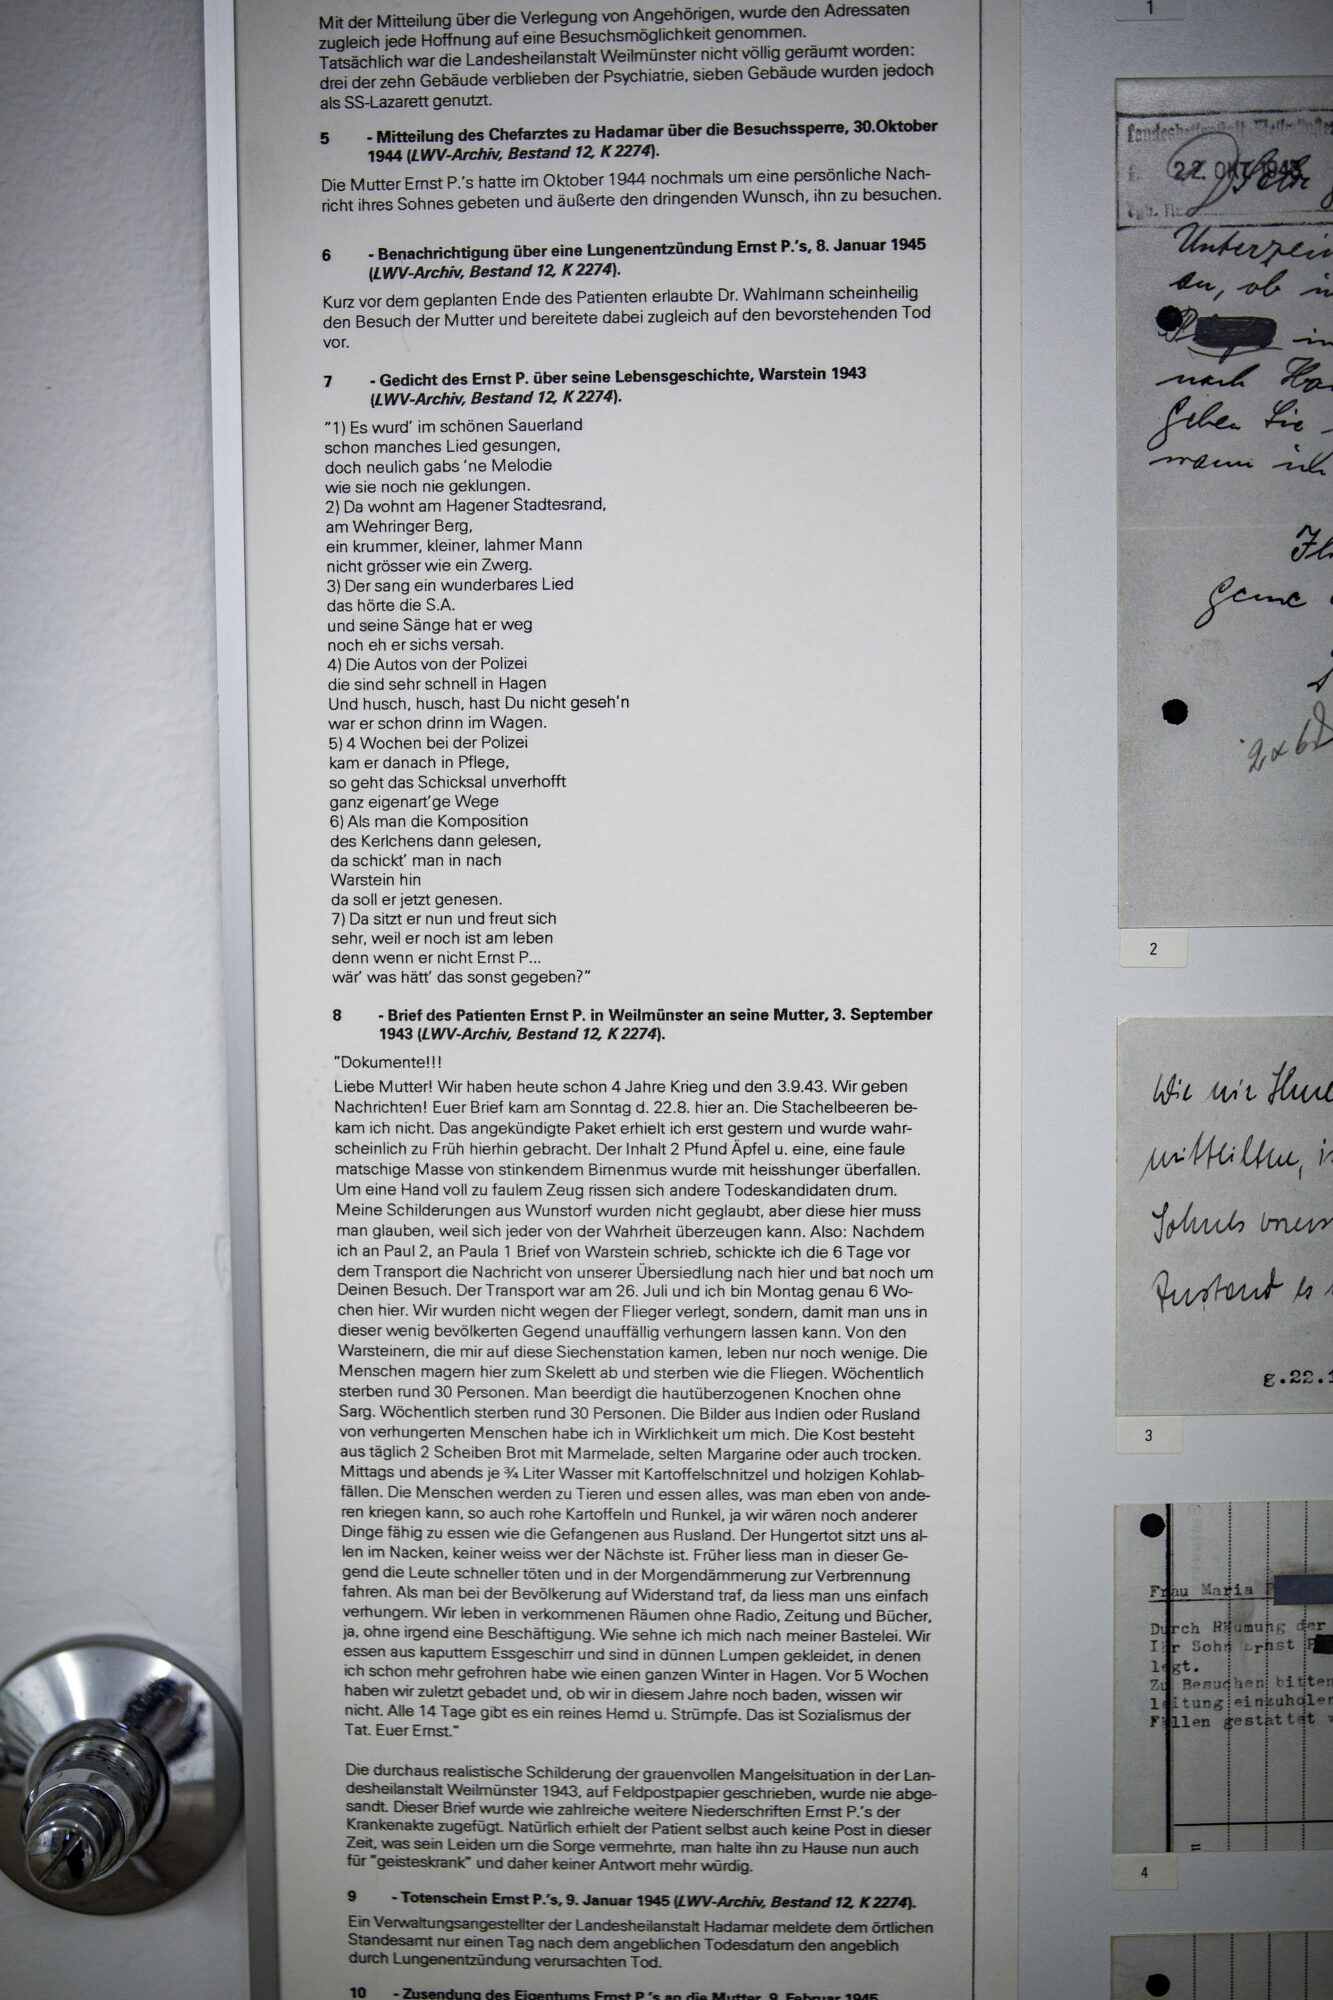 Mit der Mitteilung über die Verlegung von Angehörigen, wurde den Adressaten
zugleich jede Hoffnung auf eine Besuchsmöglichkeit genommen.
Tatsächlich war die Landesheilanstalt Weilmünster nicht völlig geräumt worden:
drei der zehn Gebäude verblieben der Psychiatrie, sieben Gebäude wurden jedoch
als SS-Lazarett genutzt.
5 - Mitteilung des Chefarztes zu Hadamar über die Besuchssperre, 30.Oktober
1944 (LWV-Archiv, Bestand 12, K 2274).
Die Mutter Ernst P.'s hatte im Oktober 1944 nochmals um eine persönliche Nach-
richt ihres Sohnes gebeten und äußerte den dringenden Wunsch, ihn zu besuchen.
6 - Benachrichtigung über eine Lungenentzündung Ernst P.'s, 8. Januar 1945
(LWV-Archiv, Bestand 12, K 2274).
Kurz vor dem geplanten Ende des Patienten erlaubte Dr. Wahlmann scheinheilig
den Besuch der Mutter und bereitete dabei zugleich auf den bevorstehenden Tod
vor.
7 - Gedicht des Ernst P. über seine Lebensgeschichte, Warstein 1943
(LWV-Archiv, Bestand 12, K 2274).
"1) Es wurd' im schönen Sauerland
schon manches Lied gesungen,
doch neulich gabs 'ne Melodie
wie sie noch nie geklungen.
2) Da wohnt am Hagener Stadtesrand,
am Wehringer Berg,
ein krummer, kleiner, lahmer Mann
nicht grösser wie ein Zwerg.
3) Der sang ein wunderbares Lied
das hörte die S.A.
und seine Sänge hat er weg
noch eh er sichs versah.
4) Die Autos von der Polizei
die sind sehr schnell in Hagen
Und husch, husch, hast Du nicht geseh'n
war er schon drinn im Wagen.
5) 4 Wochen bei der Polizei
kam er danach in Pflege,
so geht das Schicksal unverhofft
ganz eigenart'ge Wege
6) Als man die Komposition
des Kerlchens dann gelesen,
da schickt' man in nach
Warstein hin
da soll er jetzt genesen.
7) Da sitzt er nun und freut sich
sehr, weil er noch ist am leben
denn wenn er nicht Ernst P...
wär' was hätt' das sonst gegeben?"
8 - Brief des Patienten Ernst P. in Weilmünster an seine Mutter, 3. September
1943 (LWV-Archiv, Bestand 12, K 2274).
"Dokumente!!!
Liebe Mutter! Wir haben heute schon 4 Jahre Krieg und den 3.9.43. Wir geben
Nachrichten! Euer Brief kam am Sonntag d. 22.8. hier an. Die Stachelbeeren be-
kam ich nicht. Das angekündigte Paket erhielt ich erst gestern und wurde wahr-
scheinlich zu Früh hierhin gebracht. Der Inhalt 2 Pfund Äpfel u. eine, eine faule
matschige Masse von stinkendem Birnenmus wurde mit heisshunger überfallen.
Um eine Hand voll zu faulem Zeug rissen sich andere Todeskandidaten drum.
Meine Schilderungen aus Wunstorf wurden nicht geglaubt, aber diese hier muss
man glauben, weil sich jeder von der Wahrheit überzeugen kann. Also: Nachdem
ich an Paul 2, an Paula 1 Brief von Warstein schrieb, schickte ich die 6 Tage vor
dem Transport die Nachricht von unserer Übersiedlung nach hier und bat noch um
Deinen Besuch. Der Transport war am 26. Juli und ich bin Montag genau 6 Wo-
chen hier. Wir wurden nicht wegen der Flieger verlegt, sondern, damit man uns in
dieser wenig bevölkerten Gegend unauffällig verhungern lassen kann. Von den
Warsteinern, die mir auf diese Siechenstation kamen, leben nur noch wenige. Die
Menschen magern hier zum Skelett ab und sterben wie die Fliegen. Wöchentlich
sterben rund 30 Personen. Man beerdigt die hautüberzogenen Knochen ohne
Sarg. Wöchentlich sterben rund 30 Personen. Die Bilder aus Indien oder Rusland
von verhungerten Menschen habe ich in Wirklichkeit um mich. Die Kost besteht
aus täglich 2 Scheiben Brot mit Marmelade, selten Margarine oder auch trocken.
Mittags und abends je ¾ Liter Wasser mit Kartoffelschnitzel und holzigen Kohlab-
fällen. Die Menschen werden zu Tieren und essen alles, was man eben von ande-
ren kriegen kann, so auch rohe Kartoffeln und Runkel, ja wir wären noch anderer
Dinge fähig zu essen wie die Gefangenen aus Rusland. Der Hungertot sitzt uns al-
len im Nacken, keiner weiss wer der Nächste ist. Früher liess man in dieser Ge-
gend die Leute schneller töten und in der Morgendämmerung zur Verbrennung
fahren. Als man bei der Bevölkerung auf Widerstand traf, da liess man uns einfach
verhungern. Wir leben in verkommenen Räumen ohne Radio, Zeitung und Bücher,
ja, ohne irgend eine Beschäftigung. Wie sehne ich mich nach meiner Bastelei. Wir
essen aus kaputtem Essgeschirr und sind in dünnen Lumpen gekleidet, in denen
ich schon mehr gefrohren habe wie einen ganzen Winter in Hagen. Vor 5 Wochen
haben wir zuletzt gebadet und, ob wir in diesem Jahre noch baden, wissen wir
nicht. Alle 14 Tage gibt es ein reines Hemd u. Strümpfe. Das ist Sozialismus der
Tat. Euer Ernst."
Die durchaus realistische Schilderung der grauenvollen Mangelsituation in der Lan-
desheilanstalt Weilmünster 1943, auf Feldpostpapier geschrieben, wurde nie abge-
sandt. Dieser Brief wurde wie zahlreiche weitere Niederschriften Ernst P.'s der
Krankenakte zugefügt. Natürlich erhielt der Patient selbst auch keine Post in dieser
Zeit, was sein Leiden um die Sorge vermehrte, man halte ihn zu Hause nun auch
für "geisteskrank" und daher keiner Antwort mehr würdig.
9 - Totenschein Ernst P.'s, 9. Januar 1945 (LWV-Archiv, Bestand 12, K 2274).
Ein Verwaltungsangestellter der Landesheilanstalt Hadamar meldete dem örtlichen
Standesamt nur einen Tag nach dem angeblichen Todesdatum den angeblich
durch Lungenentzündung verursachten Tod.
10 - Zusendung des Eigentums Ernst P.'s an die Mutter, 9. Februar 1945
1
22. OKT. 1943
Unterzei
an, ob
nach Ha
Geben Sie
wann ich
2
Wie wir Ihne
mitteilten,
Sohnes
Zustand es
g.22.1
3
Frau Maria
Durch Räumung der
Ihr Sohn Ernst P
legt.
Zu Besuchen bitten
leitung einzuholen
Fällen gestattet w
4